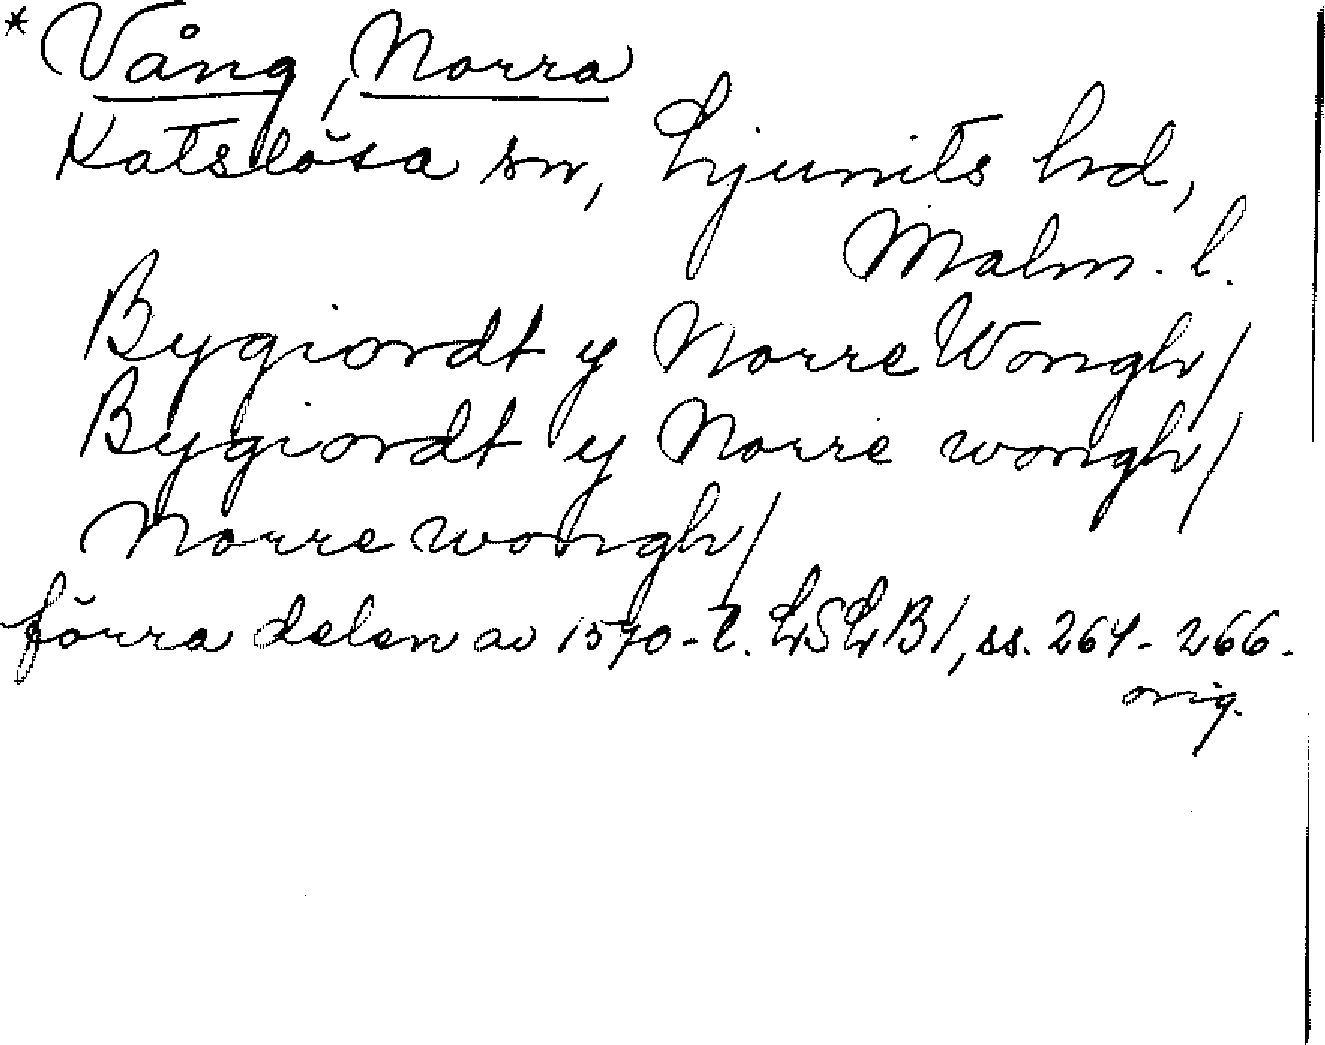 * Vång, Norra
Katslösa sn, Ljunits hd,
Malm. l.
Bygiordt y Norre Wongh/
Bygiordt y Norre wongh/
Norre wongh/
förra delen av 1570-t. LSLB1, ss. 264-266.
orig.